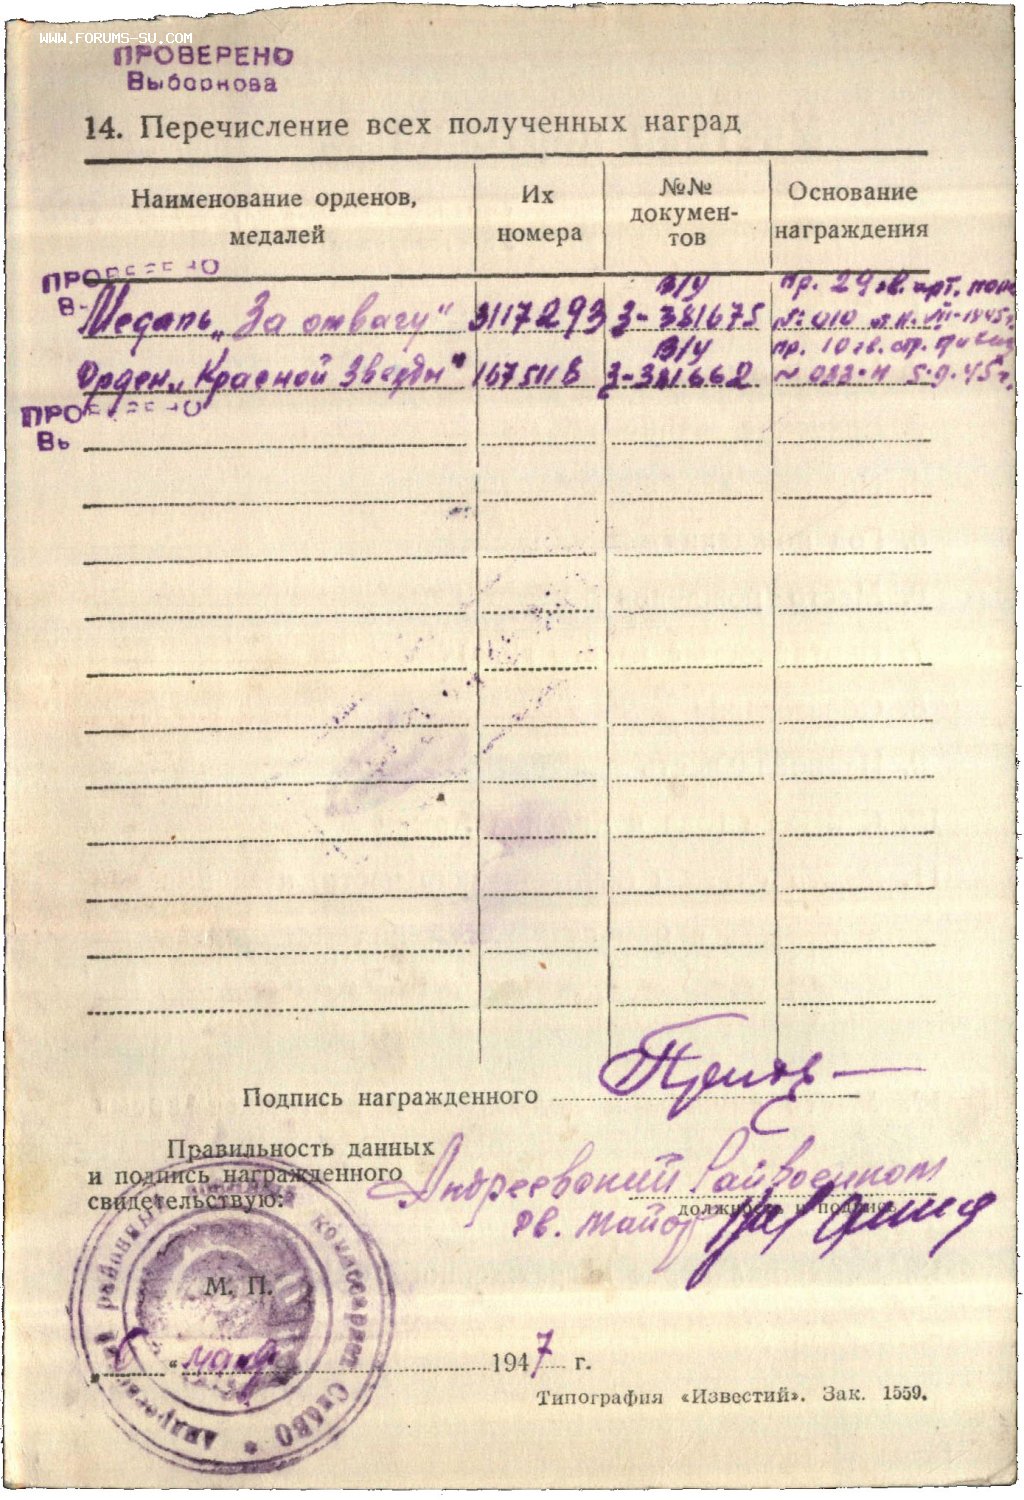 WWW.FORUMS-SU.COM
ПРОВЕРЕНО
Выборнова
14. Перечисление всех полученных наград
Наименование орденов, медалей
Их номера
№№ документов
Основание награждения
ПРОВЕРЕНО
Медаль „За отвагу" 3117293 в/у З-381675 пр. 29 гв. арт. полк № 010
Орден „Красной Звезды" 1675118 в/у З-381662 пр. 10 гв. стр. дивиз
ПРОВЕРЕНО
Подпись награжденного
Правильность данных
и подпись награжденного
свидетельствую:
Андреевский Райвоенком
должность и подпись
гв. майор
М. П.
1947 г.
Типография «Известий». Зак. 1559.